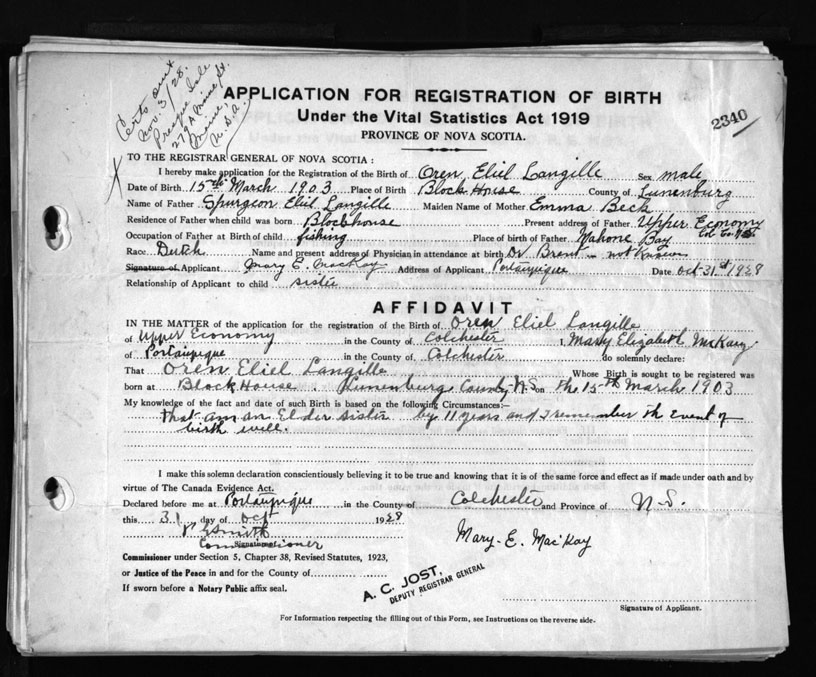 Certs sent
Nov. 3/28.
Presque Isle
279 A Maine St.
Maine,
U.S.A.
APPLICATION FOR REGISTRATION OF BIRTH
Under the Vital Statistics Act 1919
PROVINCE OF NOVA SCOTIA.
2340
X
TO THE REGISTRAR GENERAL OF NOVA SCOTIA:
I hereby make application for the Registration of the Birth of Oren Eliel Langille Sex male
Date of Birth 15th March 1903 Place of Birth Block House County of Lunenburg
Name of Father Spurgeon Eliel Langille Maiden Name of Mother Emma Beck
Residence of Father when child was born Blockhouse Present address of Father Upper Economy
Col Co N.S.
Occupation of Father at Birth of child fishing Place of birth of Father Mahone Bay
Race Dutch Name and present address of Physician in attendance at birth Dr not known
Signature of Applicant Mary E. MacKay Address of Applicant Portaupique Date Oct 31st 1928
Relationship of Applicant to child sister
AFFIDAVIT
IN THE MATTER of the application for the registration of the Birth of Oren Eliel Langille
of Upper Economy in the County of Colchester I, Mary Elizabeth McKay
of Portaupique in the County of Colchester do solemnly declare:
That Oren Eliel Langille Whose Birth is sought to be registered was
born at Block House, Lunenburg County N.S. on the 15th March 1903
My knowledge of the fact and date of such Birth is based on the following Circumstances:—
that am an Elder sister by 11 years and I remember the event of
birth well.
I make this solemn declaration conscientiously believing it to be true and knowing that it is of the same force and effect as if made under oath and by
virtue of The Canada Evidence Act.
Declared before me at Portaupique in the County of Colchester and Province of N.S.
this 31 day of Oct 1928
Smith
Commissioner
Signature of
Mary. E. MacKay
Commissioner under Section 5, Chapter 38, Revised Statutes, 1923,
or Justice of the Peace in and for the County of
If sworn before a Notary Public affix seal.
A. C. JOST,
DEPUTY REGISTRAR GENERAL
Signature of Applicant.
For Information respecting the filling out of this Form, see Instructions on the reverse side.